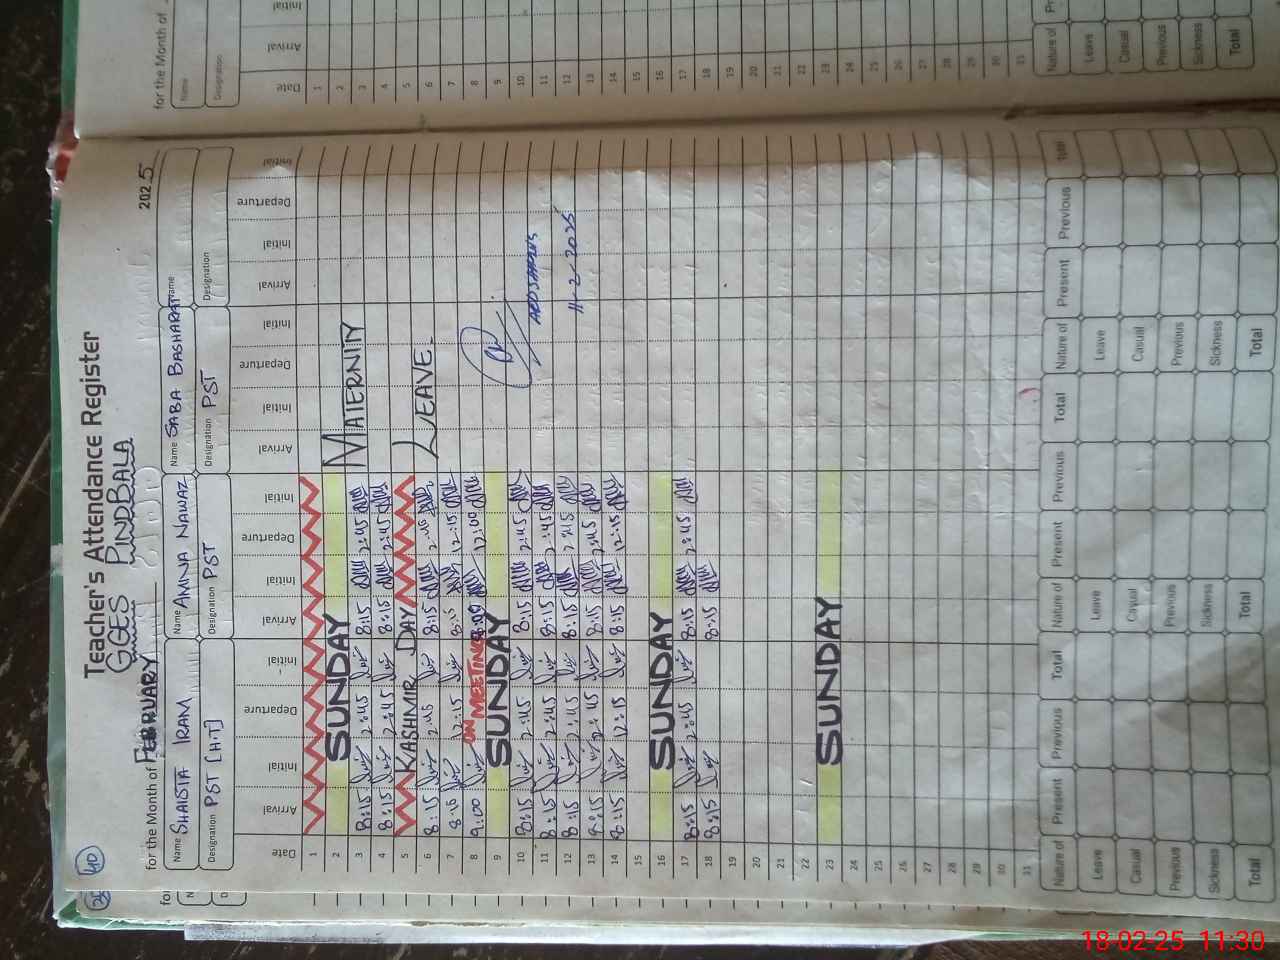 Teacher's Attendance Register
GGES PINDBALA
for the Month of FEBRUARY 2025
40
Name SHAISTA IRAM Name AMINA NAWAZ Name SABA BASHARAT Name
Designation PST [H.T] Designation PST Designation PST Designation
Date Arrival Initial Departure Initial Arrival Initial Departure Initial Arrival Initial Departure Initial Arrival Initial Departure Initial
1
2 SUNDAY
3 8:15 2:45 8:15 2:45
4 8:15 2:45 8:15 2:45
MATERNITY
5 KASHMIR DAY
6 8:15 2:45 8:15 2:45
LEAVE
7 8:15 12:15 8:15 12:15
8 9:00 ON MEETING 8:00 12:00
9 SUNDAY
10 8:15 2:45 8:15 2:45
11 8:15 2:45 8:15 2:45
12 8:15 2:45 8:15 2:45
11-2-2025
13 8:15 2:45 8:15 2:45
14 8:15 12:15 8:15 12:15
15
16 SUNDAY
17 8:15 2:45 8:15 2:45
18 8:15 8:15
19
20
21
22
23 SUNDAY
24
25
26
27
28
29
30
31
Nature of Present Previous Total Nature of Present Previous Total Nature of Present Previous Total
Leave Leave Leave
Casual Casual Casual
Previous Previous Previous
Sickness Sickness Sickness
Total Total Total
for the Month of
Name
Designation
Date Arrival Initial
1
2
3
4
5
6
7
8
9
10
11
12
13
14
15
16
17
18
19
20
21
22
23
24
25
26
27
28
29
30
31
Nature of
Leave
Casual
Previous
Sickness
Total
18-02-25 11:30